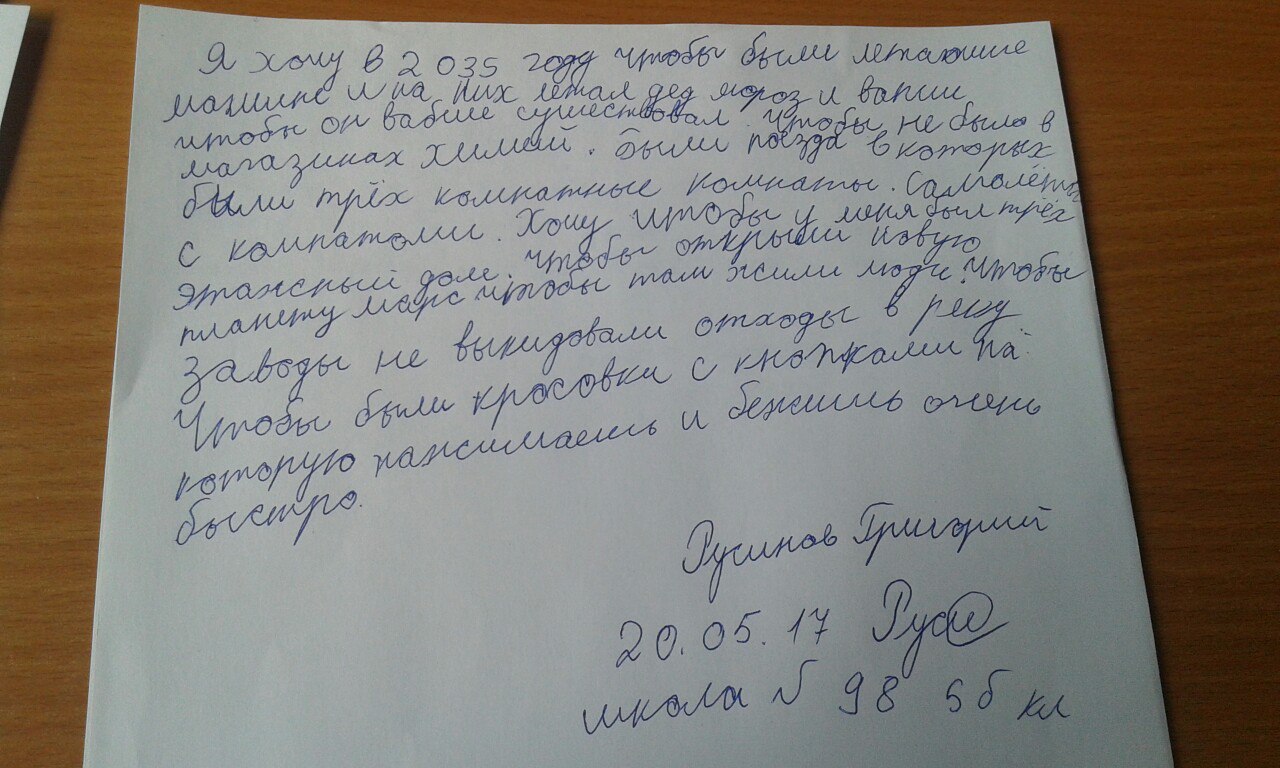 Я хочу в 2035 году чтобы были летающие
машины и на них летал дед мороз и вапши
чтобы он вабше существовал. Чтобы не было в
магазинах химий. Были поезда в которых
были трёх комнатные комнаты. Самолёты
с комнатоми. Хочу чтобы у меня был трёх
этажный дом. Чтобы открыли новую
планету марс чтобы там жили люди. Чтобы
заводы не выкидовали отходы в реку
Чтобы были кросовки с кнопками на
которую нажимаешь и бежишь очень
быстро.
Русинов Григорий
20.05.17 Руси
школа № 98 5б кл